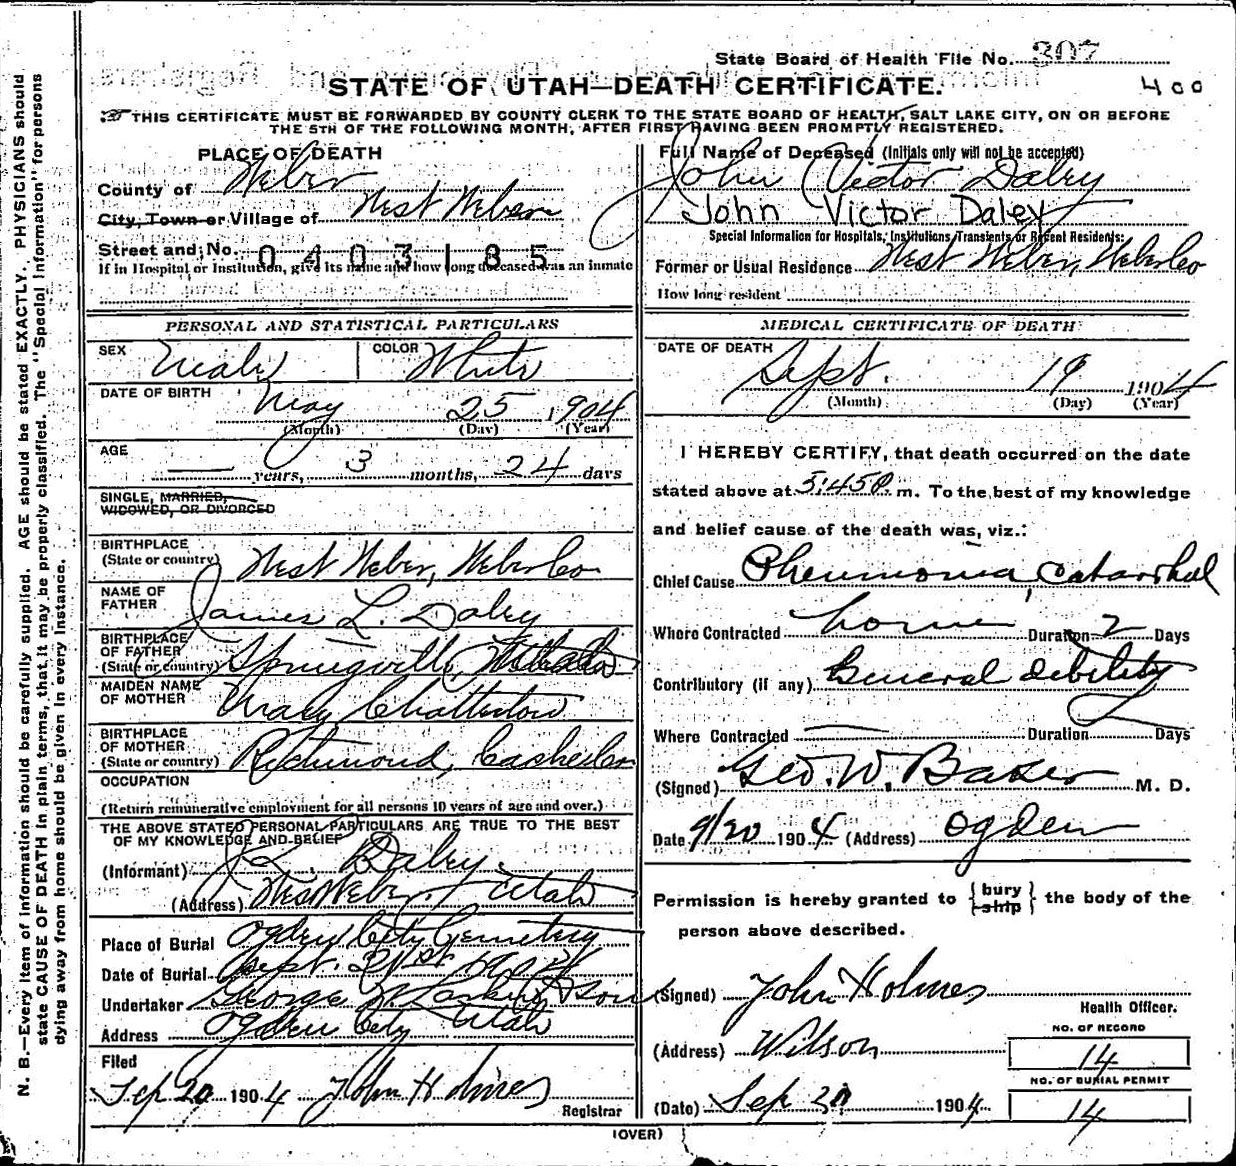 State Board of Health File No. 307
STATE OF UTAH—DEATH CERTIFICATE.
400
THIS CERTIFICATE MUST BE FORWARDED BY COUNTY CLERK TO THE STATE BOARD OF HEALTH, SALT LAKE CITY, ON OR BEFORE
THE 5TH OF THE FOLLOWING MONTH, AFTER FIRST HAVING BEEN PROMPTLY REGISTERED.
PLACE OF DEATH
County of Weber
City, Town or Village of West Weber
Street and No. 0403185
If in Hospital or Institution, give its name and how long deceased was an inmate
PERSONAL AND STATISTICAL PARTICULARS
SEX Male COLOR White
DATE OF BIRTH May 25, 1904
(Month) (Day) (Year)
AGE — years, 3 months, 24 days
SINGLE, MARRIED,
WIDOWED, OR DIVORCED
BIRTHPLACE
(State or country) West Weber, Weber Co
NAME OF
FATHER James L. Daley
BIRTHPLACE
OF FATHER
(State or country) Springville,
MAIDEN NAME
OF MOTHER Mary Chatterton
BIRTHPLACE
OF MOTHER
(State or country) Richmond, Cache Co
OCCUPATION
(Return remunerative employment for all persons 10 years of age and over.)
THE ABOVE STATED PERSONAL PARTICULARS ARE TRUE TO THE BEST
OF MY KNOWLEDGE AND BELIEF
(Informant) J. L. Daley.
(Address) West Weber, Utah
Place of Burial Ogden City Cemetery
Date of Burial Sept. 21st 1904
Undertaker George W. Larkin & Sons
Address Ogden City Utah
Filed
Sep 20 1904 John Holmes
Registrar
Full Name of Deceased (Initials only will not be accepted)
John Victor Daley
John Victor Daley
Special Information for Hospitals, Institutions, Transients or Recent Residents:
Former or Usual Residence West Weber, Weber Co
How long resident
MEDICAL CERTIFICATE OF DEATH
DATE OF DEATH
Sept. 19 1904
(Month) (Day) (Year)
I HEREBY CERTIFY, that death occurred on the date
stated above at 5:45 P. m. To the best of my knowledge
and belief cause of the death was, viz.:
Chief Cause Pneumonia, Catarrhal
Where Contracted home Duration 2 Days
Contributory (if any) General debility
Where Contracted — Duration Days
(Signed) Geo. W. Baker M. D.
Date 9/20 1904 (Address) Ogden
Permission is hereby granted to {bury
ship} the body of the
person above described.
(Signed) John Holmes
Health Officer.
(Address) Wilson
NO. OF RECORD
14
NO. OF BURIAL PERMIT
14
(Date) Sep 20 1904
(OVER)
N. B.—Every item of information should be carefully supplied. AGE should be stated EXACTLY. PHYSICIANS should
state CAUSE OF DEATH in plain terms, that it may be properly classified. The "Special Information" for persons
dying away from home should be given in every instance.